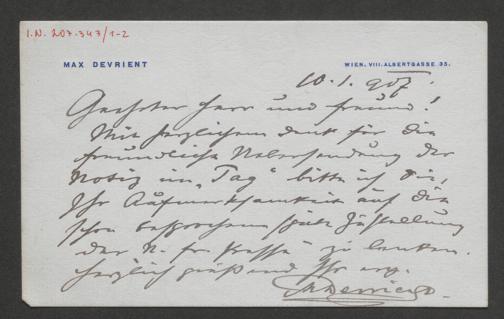 I.N. 207.347/1-2
MAX DEVRIENT
WIEN, VIII. ALBERTGASSE 35.
10.1.907.
Geehrter Herr und Freund!
Mit herzlichem Dank für die
freundliche Uebersendung der
Notiz im „Tag“ bitte ich Sie,
Ihr Aufmerksamkeit auf die
schon besprochene späte Zustellung
der „N. fr. Presse“ zu lenken.
Herzlich grüßend Ihr erg.
MDevrient